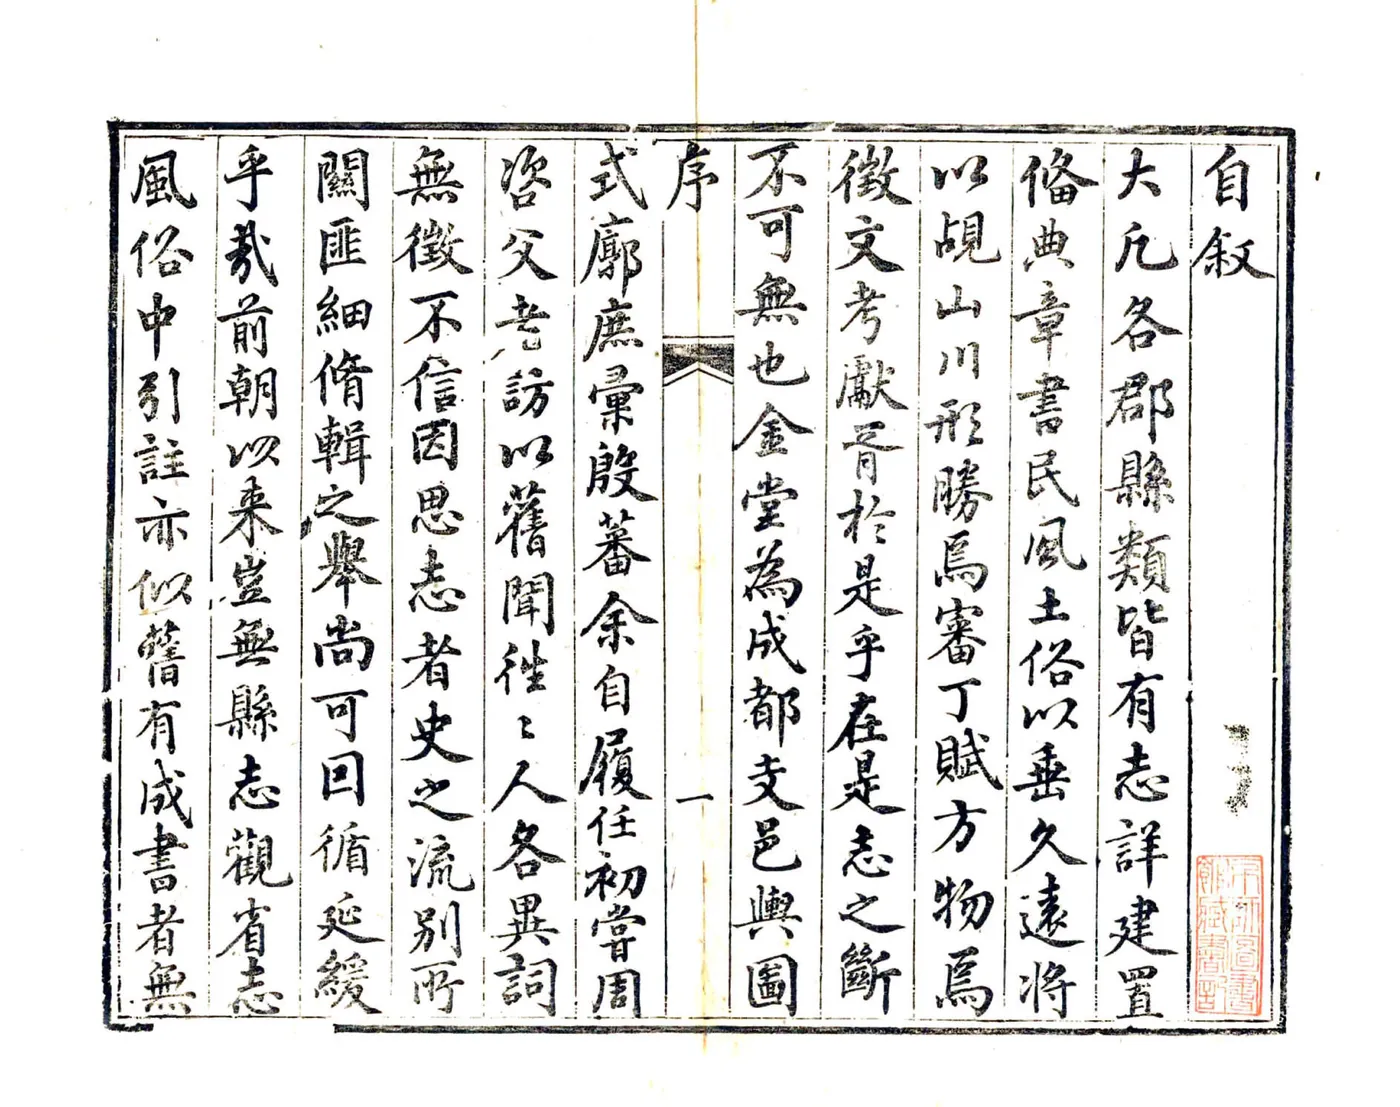 自叙
大凡各郡縣類皆有志詳建置
俻典章書民風土俗以垂久遠將
以覘山川形勝焉審丁賦方物焉
徵文考獻胥於是乎在是志之斷
不可無也金堂為成都支邑輿圖
序
一
式廓庶彙殷蕃余自履任初嘗周
咨父耆訪以舊聞徃〻人各異詞
無徵不信因思志者史之流别所
關匪細脩輯之舉尚可回循延緩
乎㢤前朝以来豈無縣志觀省志
風俗中引註亦似舊有成書者無